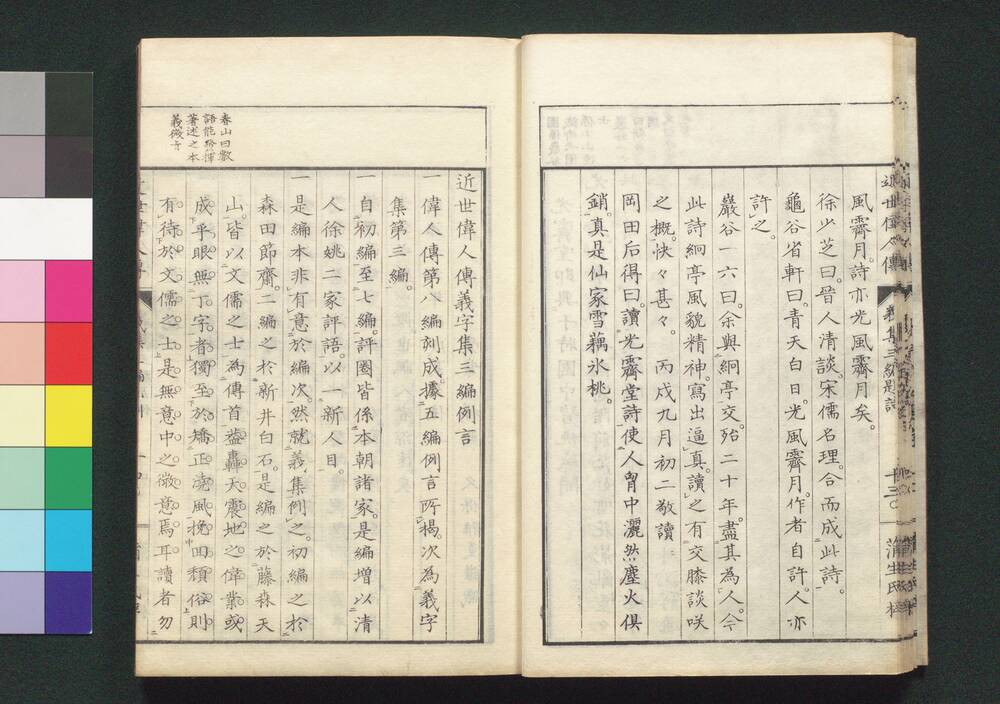 近世偉人傳 義集三編題詩 十三 蒲生氏梓
風霽月。詩亦光風霽月矣。
徐少芝曰。晉人清談。宋儒名理。合而成此詩。
龜谷省軒曰。青天白日。光風霽月。作者自許。人亦
許之。
巖谷一六曰。余與絅亭交。殆二十年。盡其為人。今
此詩絅亭風貌精神。寫出逼真。讀之有交膝談咲
之概。快々甚々。 丙戍九月初二敬讀
岡田后得曰。讀光霽堂詩。使人胷中灑然塵火俱
銷。真是仙家雪藕氷桃。
春山曰數
語能發揮
著述之本
義微旨
近世偉人傳義字集三編例言
一偉人傳第八編刻成。據五編例言所揭。次為義字
集第三編。
一自初編至七編。評圈皆係本朝諸家。是編增以清
人徐姚二家評語。以一新人目。
一是編本非有意於編次。然就義集例之。初編之於
森田節齋。二編之於新井白石。是編之於藤森天
山。皆以文儒之士為傳首。盖轟天震地之偉業。或
成乎眼無丁字者。獨至於矯正澆風挽回頽俗。則
有待於文儒之士。是無意中之微意焉耳。讀者勿